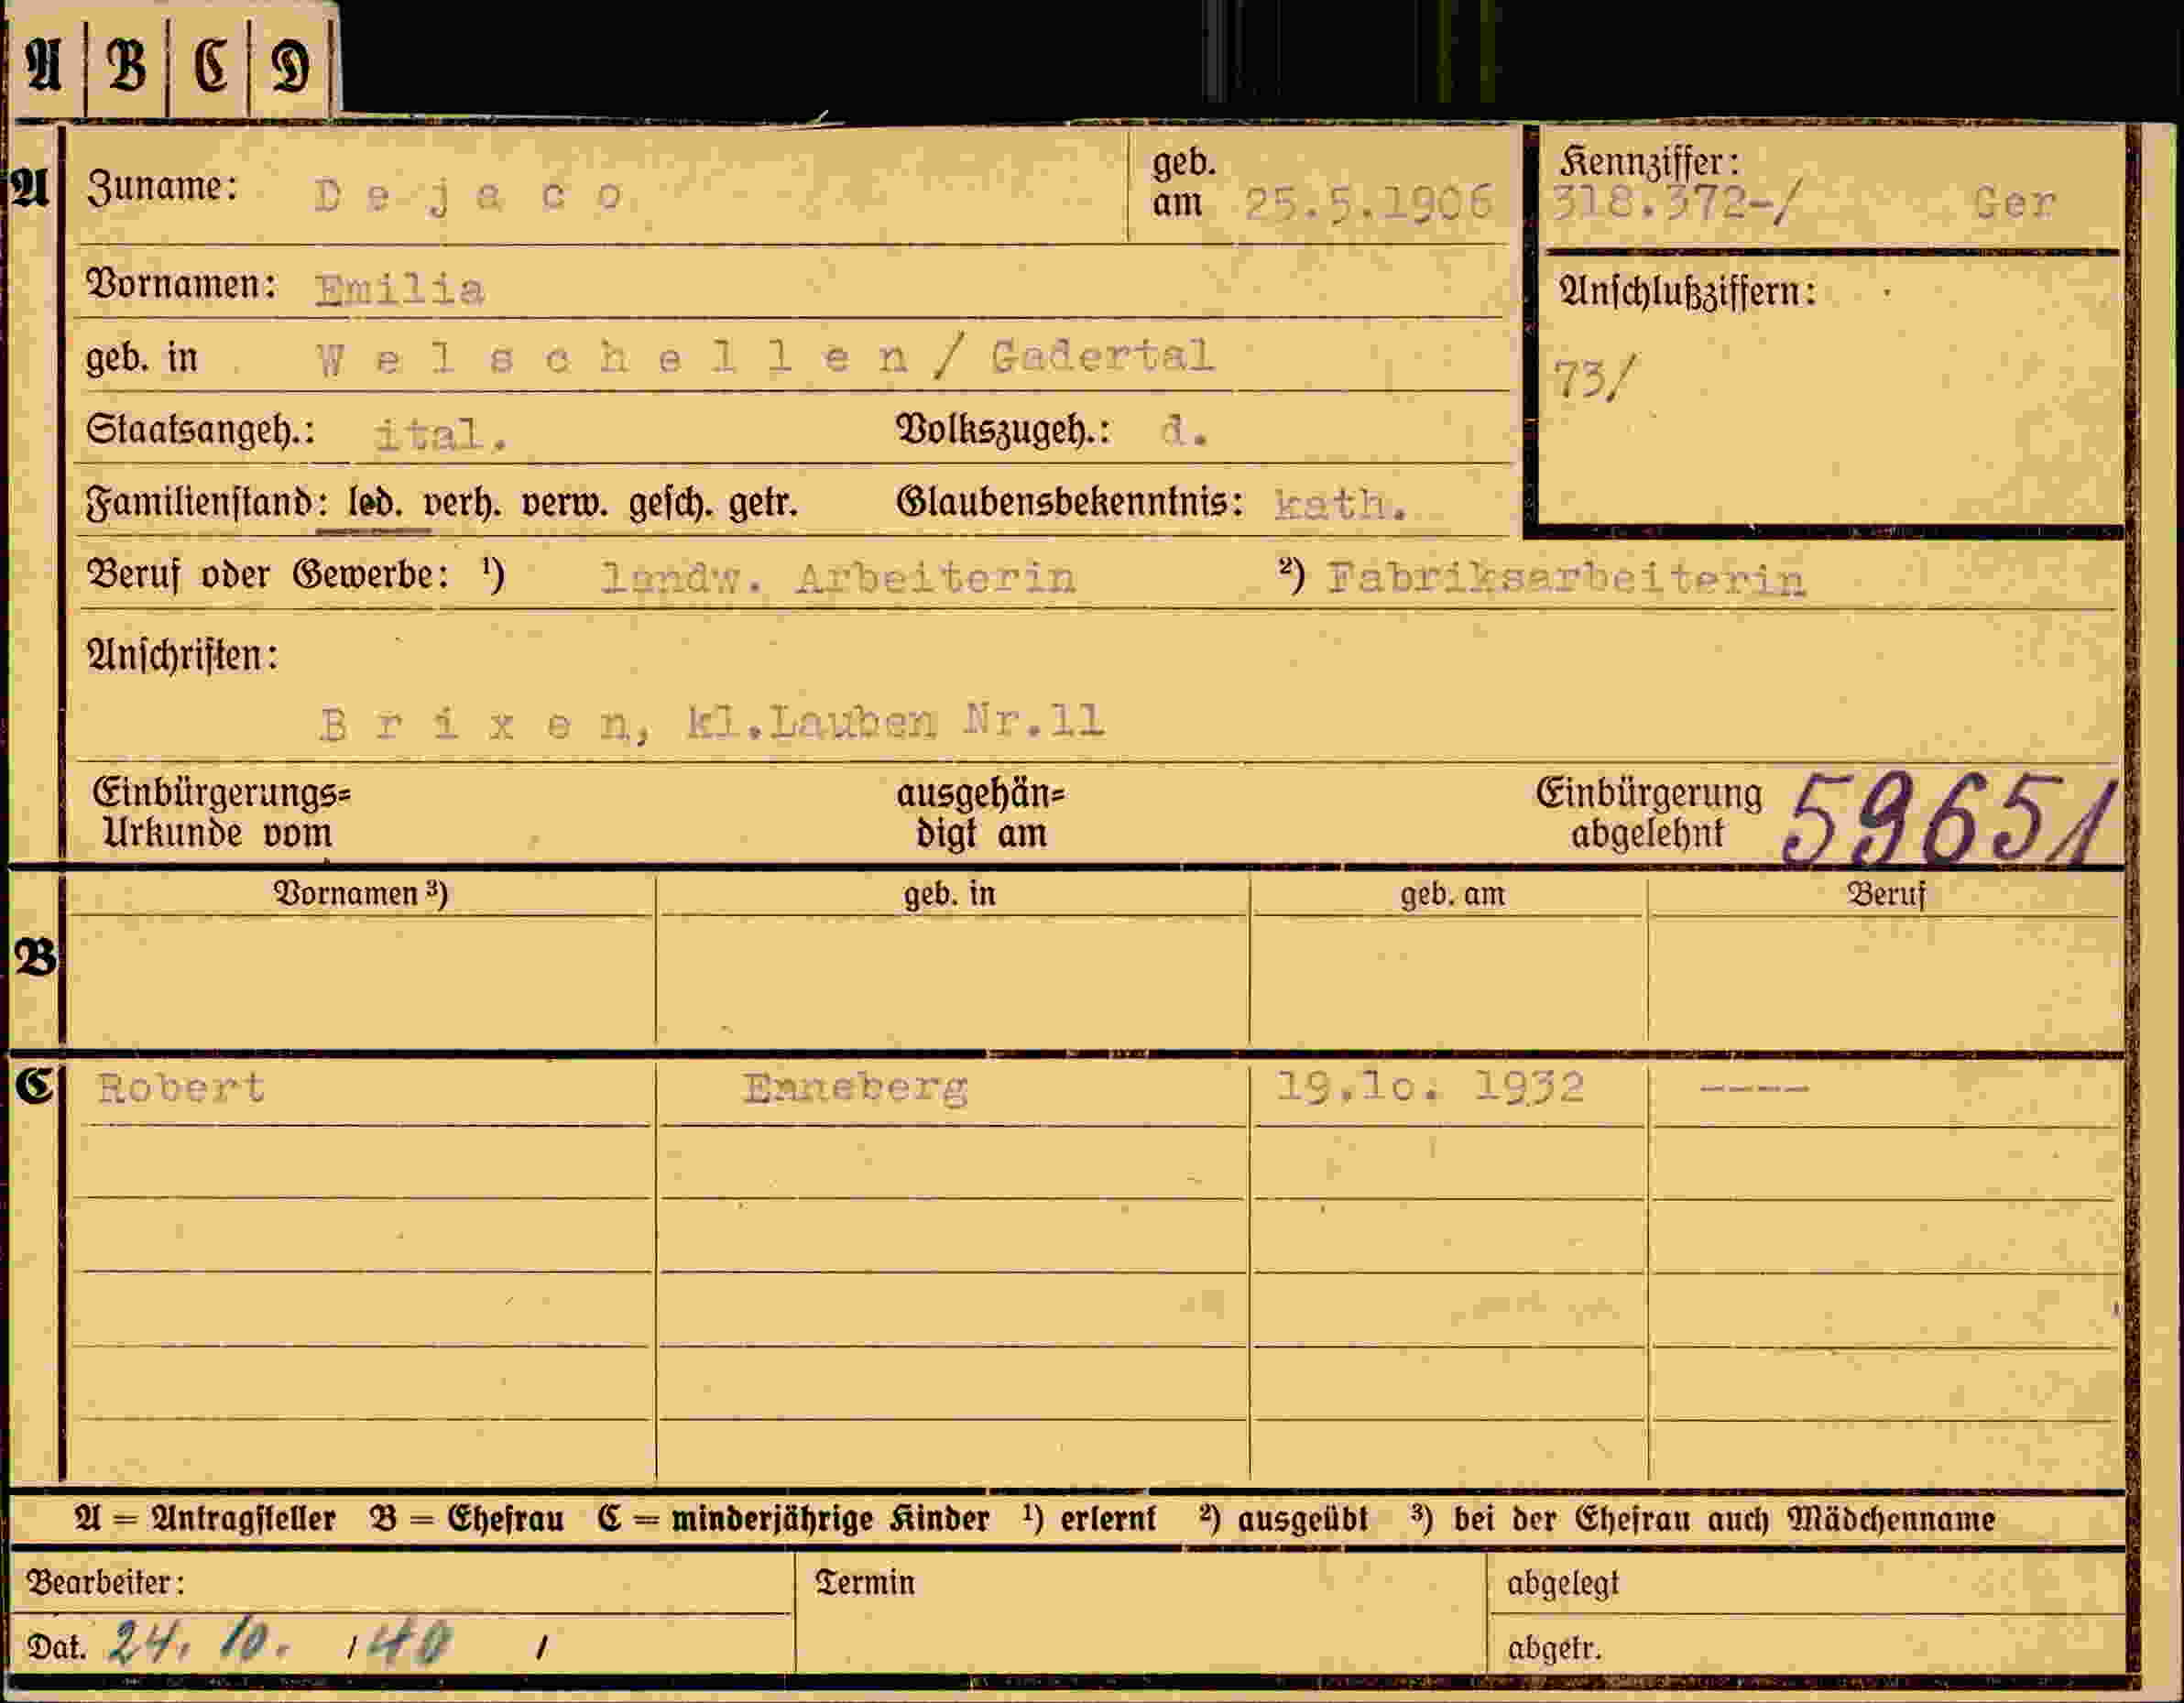 A B C D
A Zuname: Dejaco geb. am 25.5.1906 Kennziffer: 318.372-/ Ger
Vornamen: Emilia Anschlußziffern:
geb. in Welschellen / Gadertal 73/
Staatsangeh.: ital. Volkszugeh.: d.
Familienstand: led. verh. verw. gesch. getr. Glaubensbekenntnis: kath.
Beruf oder Gewerbe: ¹) landw. Arbeiterin ²) Fabriksarbeiterin
Anschriften:
Brixen, kl.Lauben Nr.11
Einbürgerungs= ausgehän= Einbürgerung 59651
Urkunde vom digt am abgelehnt
Vornamen ³) geb. in geb. am Beruf
B
C Robert Enneberg 19.10. 1932 ----
A = Antragsteller B = Ehefrau C = minderjährige Kinder ¹) erlernt ²) ausgeübt ³) bei der Ehefrau auch Mädchenname
Bearbeiter: Termin abgelegt
Dat. 24. 10. / 40 / abgetr.